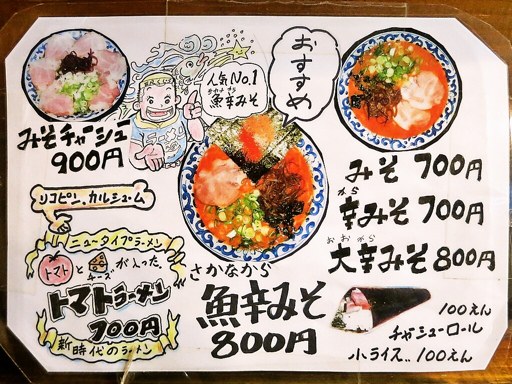 みそチャーシュー
900円
人気No.1
さかなから
魚辛みそ
おすすめ
みそ 700円
から
辛みそ 700円
おおから
大辛みそ 800円
リコピン、カルシューム
ニュータイプラーメン
トマトと
チーズ
が入った
トマトラーメン
700円
新時代のラーメン
さかなから
魚辛みそ
800円
100えん
チャシューロール
小ライス‥100えん